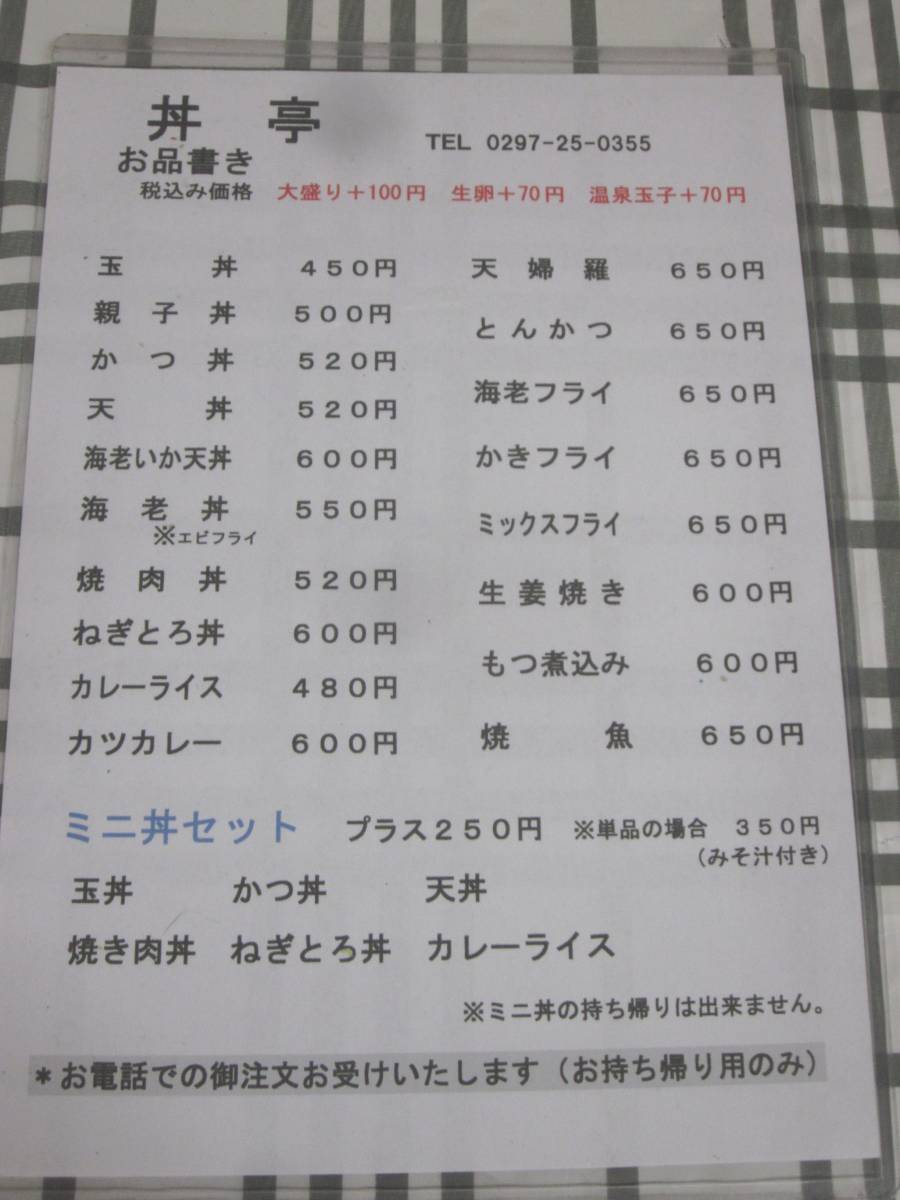 丼亭
TEL 0297-25-0355
お品書き
税込み価格 大盛り+100円 生卵+70円 温泉玉子+70円
玉丼 450円
親子丼 500円
かつ丼 520円
天丼 520円
海老いか天丼 600円
海老丼 550円
※エビフライ
焼肉丼 520円
ねぎとろ丼 600円
カレーライス 480円
カツカレー 600円
天婦羅 650円
とんかつ 650円
海老フライ 650円
かきフライ 650円
ミックスフライ 650円
生姜焼き 600円
もつ煮込み 600円
焼魚 650円
ミニ丼セット プラス250円 ※単品の場合 350円
(みそ汁付き)
玉丼 かつ丼 天丼
焼き肉丼 ねぎとろ丼 カレーライス
※ミニ丼の持ち帰りは出来ません。
*お電話での御注文お受けいたします(お持ち帰り用のみ)